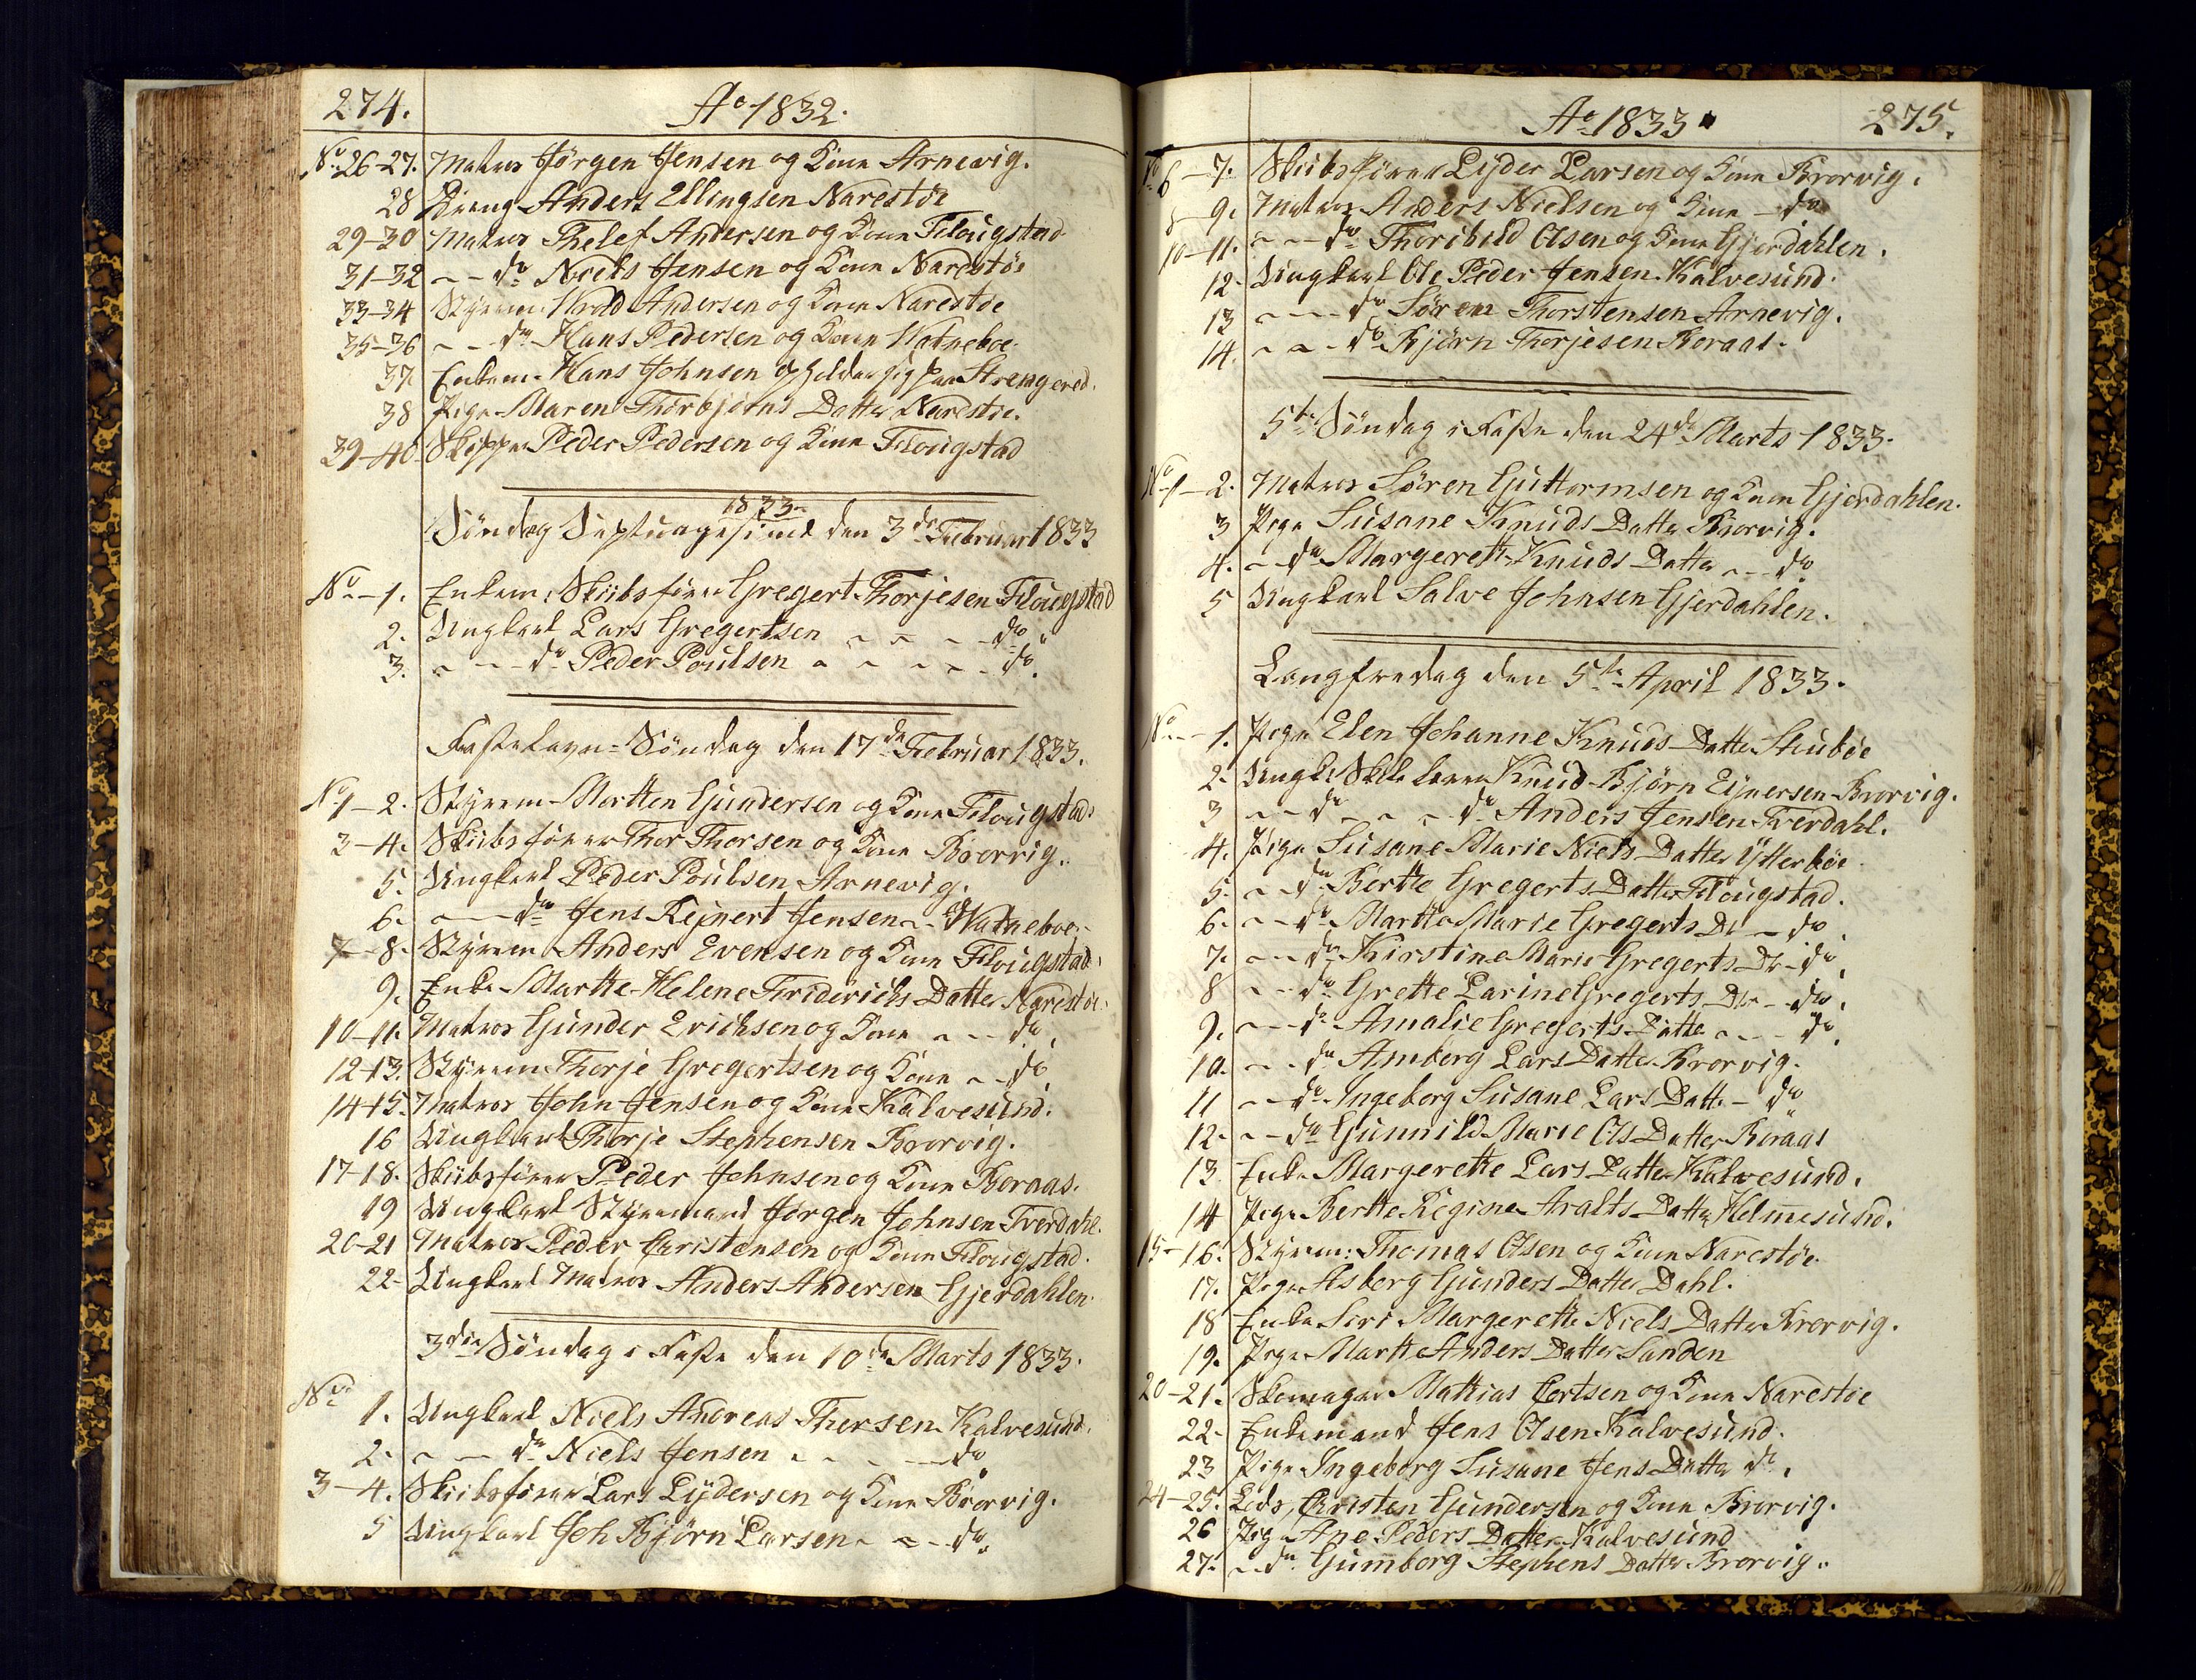 274.
Ao 1832.
No 26-27. Matros Jörgen Jensen og Kone Arnevig.
28 Dreng Anders Ellingsen Narestöe
29-30 Matros Thelef Andersen og Kone Flougstad
31-32 - - do Niels Jensen og Kone Narestöe
33-34 Styrm. Wrold Andersen og Kone Narestöe
35-36 - - do Hans Pedersen og Kone Watneboe
37 Enkem. Hans Johnsen opholder sig paa Strengered.
38 Pige Maren Thorbjörns Datter Narestöe.
39-40 Skipper Peder Pedersen og Kone Flougstad
1833.
Söndag Septuagesima den 3de Februar 1833
No - 1. Enkem: Skibsförer Gregert Thorjesen Flougstad
2. Ungkarl Lars Gregertsen - - - - do
3. - - - do Peder Poulsen - - - - do.
Fastelavns-Söndag den 17de Februar 1833.
No 1-2. Styrm. Martten Gundersen og Kone Flougstad.
3-4. Skibsförer Thor Thorsen og Kone Brorvig.
5. Ungkarl Peder Poulsen Arnevig.
6. - - - do Jens Rejnert Jensen - Watneboe.
7-8. Styrm Anders Evensen og Kone Flougstad.
9. Enke Marthe Helene Friderichs Datter Narestöe.
10-11. Matros Gunder Erichsen og Kone - - - do.
12-13. Styrm Thorje Gregertsen og Kone - - do.
14-15. Matros John Jensen og Kone Kalvesund.
16 Ungkarl Thorje Stephensen Brorvig.
17-18. Skibsförer Peder Johnsen og Kone Boraas.
19 Ungkarl Styrmand Jörgen Johnsen Tverdahl.
20-21 Matros Peder Christensen og Kone Flougstad.
22- Ungkarl Matros Anders Andersen Gjerdahlen.
3die Söndag i Faste den 10de Marts 1833.
No 1. Ungkarl Niels Andreas Thorsen Kalvesund.
2. - - - do Niels Jensen - - - - do
3-4. Skibsförer Lars Lydersen og Kone Brorvig.
5 Ungkarl Joh Björn Larsen - - - do.
Ao 1833
275.
No 6-7. Skibsförer Lyder Larsen og Kone Brorvig.
8-9. Matros Anders Nielsen og Kone - do
10-11. - - - do Thoribild Olsen og Kone Gjerdahlen.
12- Ungkarl Ole Peder Jensen Kalvesund.
13 - - - do Sören Thorstensen Arnevig.
14. - - - do Björn Thorjesen Boraas.
5te Söndag i Faste den 24de Marts 1833.
No 1-2. Matros Sören Guttormsen og Kone Gjerdahlen.
3 Pige Susane Knuds Datter Brorvig.
4. - do Margerethe Knuds Datter - - do.
5 Ungkarl Salve Johnsen Gjerdahlen.
Langfredag den 5te April 1833.
No - 1. Pige Elen Johanne Knuds Datter Skuböe
2. Ungk: Knud Björn Ejnersen Brorvig.
3 - - do - - - do Anders Jensen Tverdahl.
4. Pige Susane Marie Niels Datter Ytterböe
5. - - do Berthe Gregerts Datter Flougstad.
6. - - do Marthe Marie Gregerts Dr - do
7. - - do Kirstine Marie Gregerts Dr - do.
8 - - do Grette Larine Gregerts Dtr - do.
9. - - do Amalie Gregerts Datter - - - do.
10. - - do Amborg Lars Datter Brorvig.
11 - - do Ingeborg Susane Lars Datter - do
12- - - do Gunnild Marie Ols Datter Boraas
13. Enke Margerethe Lars Datter Kalvesund.
14 Pige Berthe Regine Aralts Datter Helmesund.
15-16. Styrm: Thomas Olsen og Kone Narestöe.
17. Pige Asborg Gunders Datter Dahl.
18 Enke Siri Margerethe Niels Datter Brorvig.
19. Pige Marthe Anders Datter Sanden
20-21. Skomager Mathias Certsen og Kone Narestöe
22- Enkemand Jens Olsen Kalvesund.
23 Pige Ingeborg Susane Jens Datter do.
24-25. Lods, Christen Gundersen og Kone Brorvig.
26 Pige Ane Peders Datter Kalvesund
27. - do Gumborg Stephens Datter Brorvig.